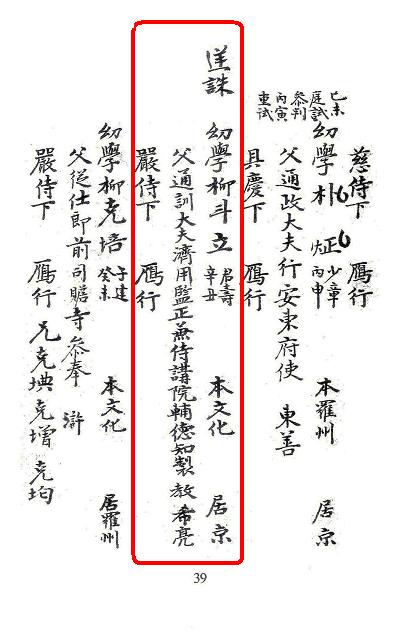 慈侍下 鴈行
己未
庭試
參判
丙寅
重試
幼學朴炡 少章 丙申 本羅州 居京
父通政大夫行安東府使 東善
具慶下 鴈行
逆誅 幼學柳斗立 君壽 辛丑 本文化 居京
父通訓大夫濟用監正兼侍講院輔德知製敎 希亮
嚴侍下 鴈行
幼學柳克培 子建 癸未 本文化 居羅州
父從仕郎前司贍寺參奉 滸
嚴侍下 鴈行 兄克㙉 克增 克均
39